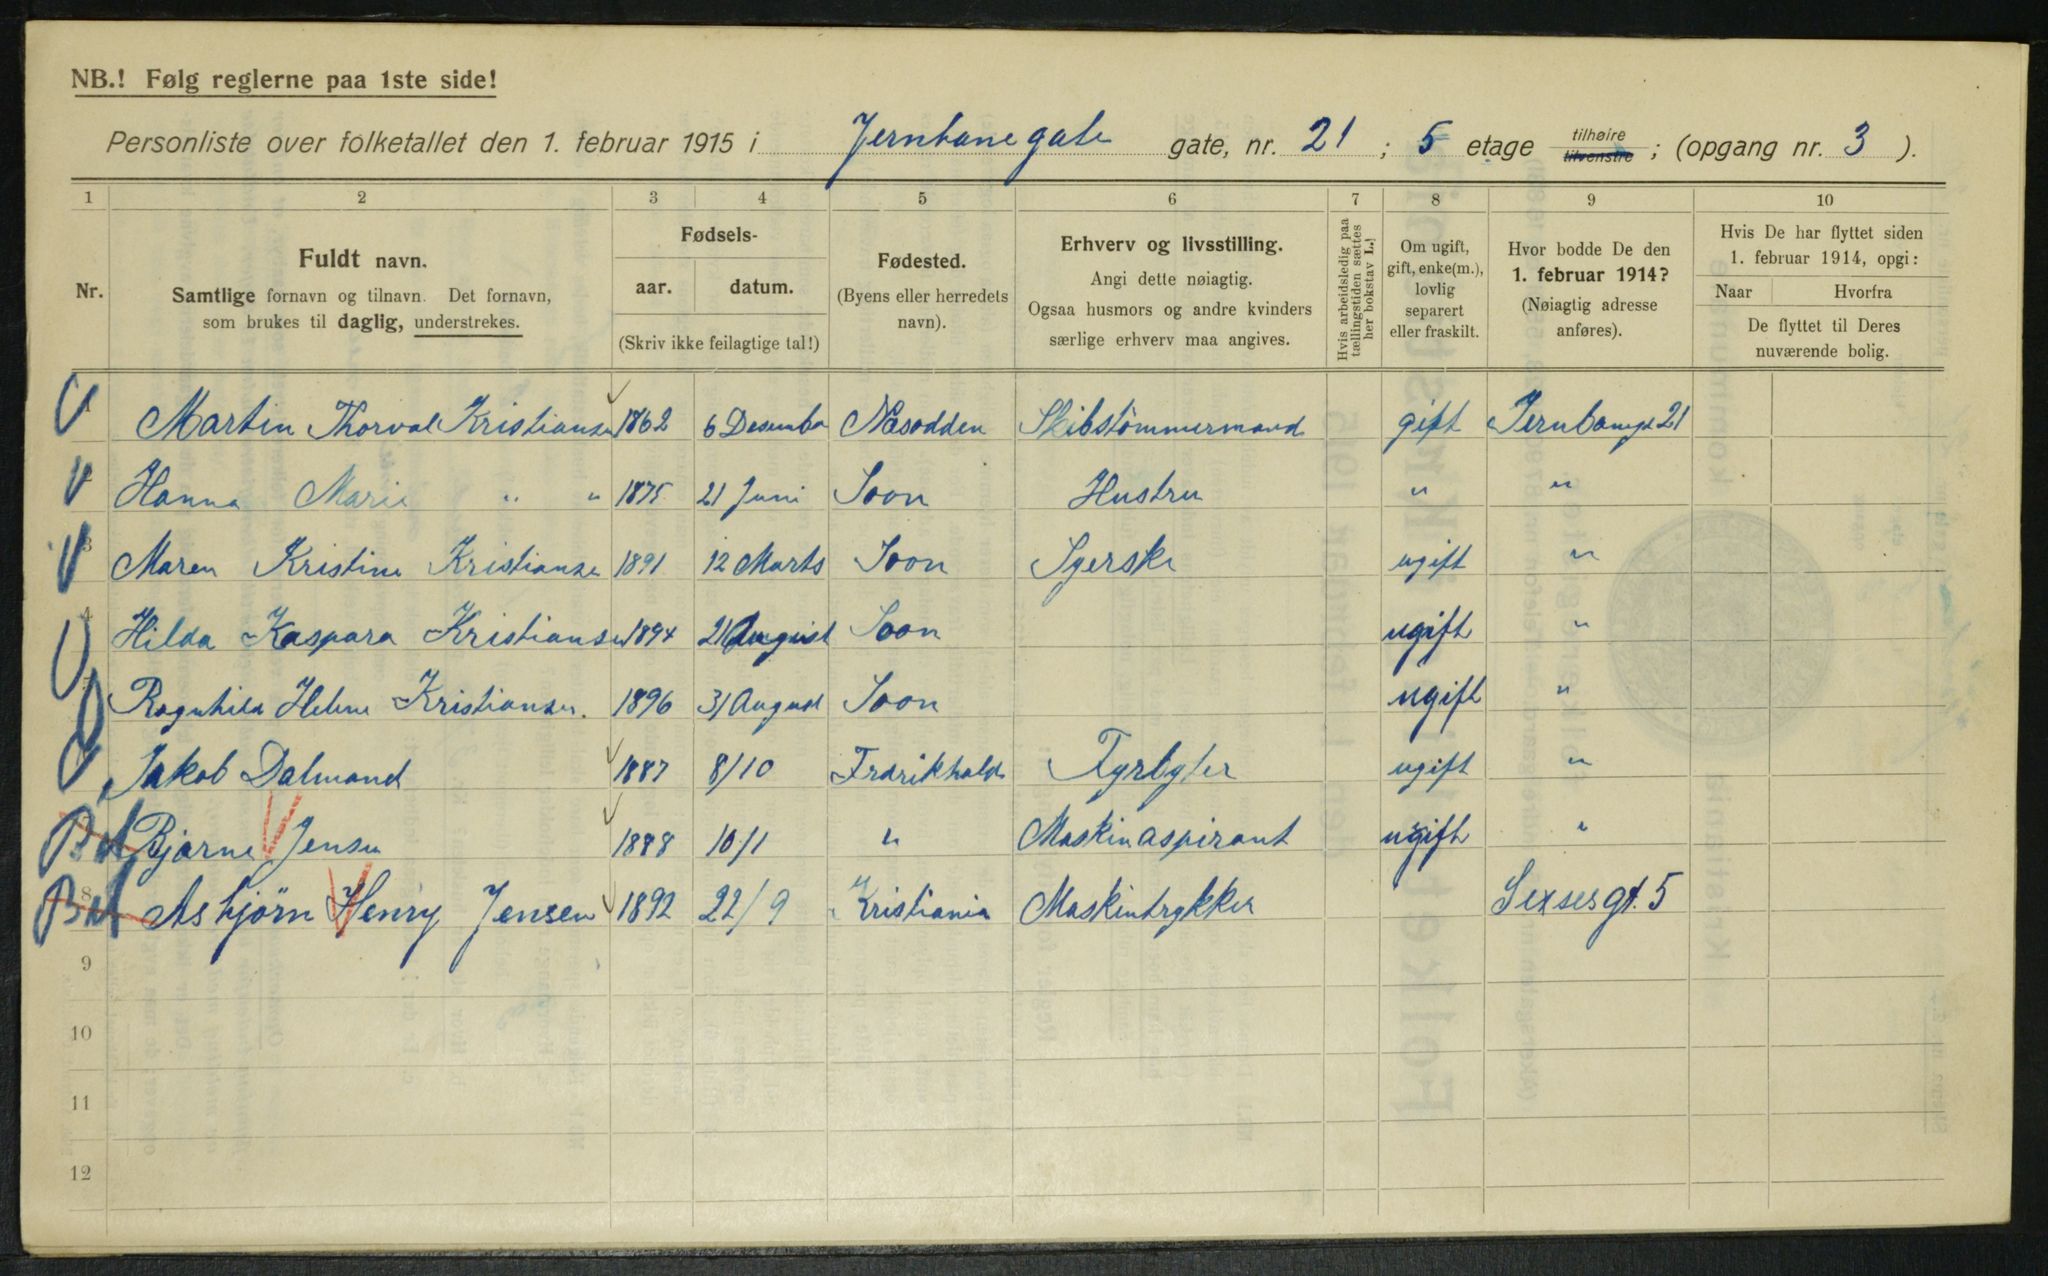 NB.! Følg reglerne paa 1ste side!
Personliste over folketallet den 1. februar 1915 i Jernbanegate gate, nr. 21 ; 5 etage tilhøire tilvenstre ; (opgang nr. 3 ).
1 2 3 4 5 6 7 8 9 10
Nr.
Fuldt navn.
Samtlige fornavn og tilnavn. Det fornavn,
som brukes til daglig, understrekes.
Fødsels-
aar. datum.
(Skriv ikke feilagtige tal!)
Fødested.
(Byens eller herredets
navn).
Erhverv og livsstilling.
Angi dette nøiagtig.
Ogsaa husmors og andre kvinders
særlige erhverv maa angives.
Hvis arbeidsledig paa
tællingstiden sættes
her bokstav L.!
Om ugift,
gift, enke(m.),
lovlig
separert
eller fraskilt.
Hvor bodde De den
1. februar 1914?
(Nøiagtig adresse
anføres).
Hvis De har flyttet siden
1. februar 1914, opgi:
Naar Hvorfra
De flyttet til Deres
nuværende bolig.
1 Martin Thorval Kristiansen 1862 6 Desember Næsodden Skibstömmermand gift Jernbanegt 21
2 Hanna Marie " " 1875 21 Juni Soon Hustru " "
3 Maren Kristine Kristiansen 1891 12 Marts Soon Syerske ugift "
4 Hilda Kaspara Kristiansen 1894 21 August Soon ugift "
Ragnhild Helene Kristiansen. 1896 31 August Soon ugift "
Jakob Dalmand 1887 8/10 Fredrikhald Fyrbyter ugift "
7 Bjarne Jensen 1888 10/1 " Maskinaspirant ugift "
8 Asbjörn Henry Jensen 1892 22/9 Kristiania Maskintrykker Sexsesgt. 5
9
10
11
12